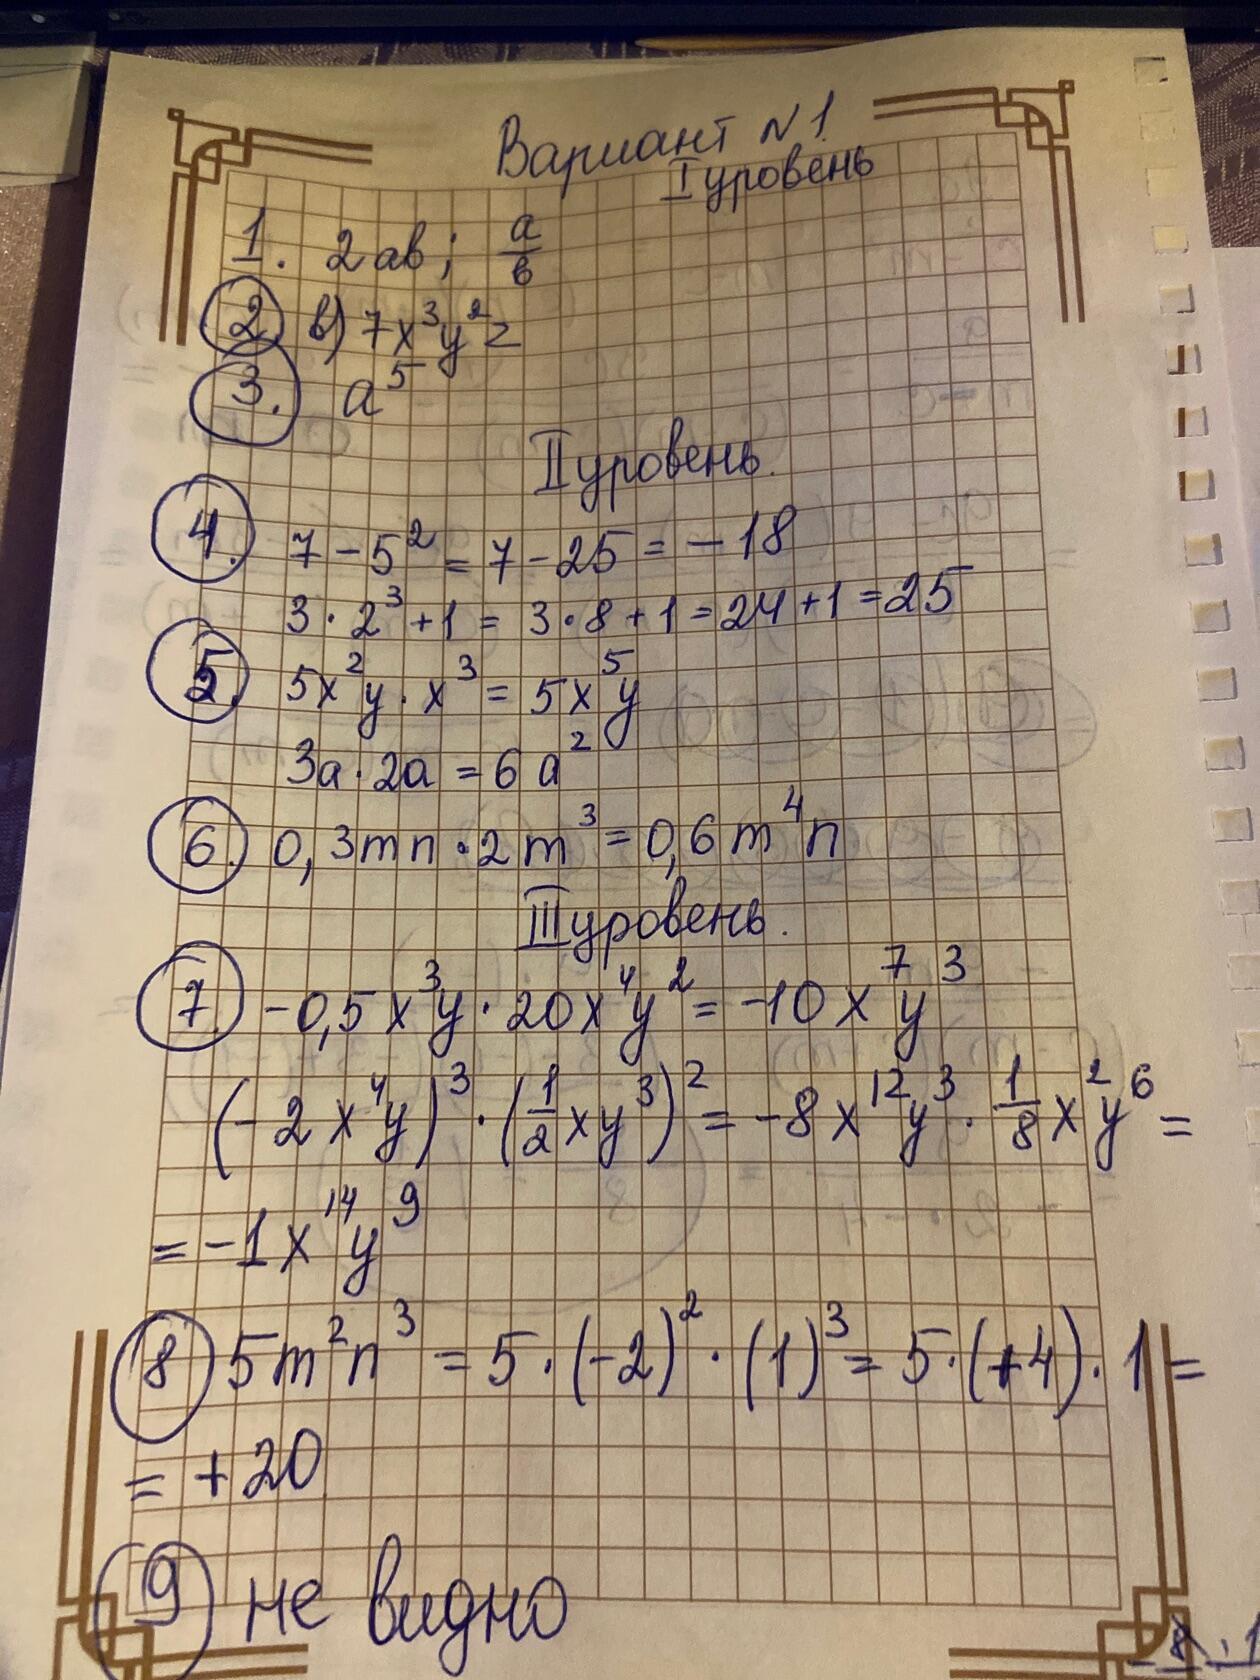 Вариант №1.
I уровень
1. 2ab; a/b
2. в) 7x³y²z
3. a⁵
II уровень.
4. 7 - 5² = 7 - 25 = - 18
3 · 2³ + 1 = 3 · 8 + 1 = 24 + 1 = 25
5. 5x²y · x³ = 5x⁵y
3a · 2a = 6a²
6. 0,3mn · 2m³ = 0,6m⁴n
III уровень.
7. -0,5x³y · 20x⁴y² = -10x⁷y³
(-2x⁴y)³ · (1/2xy³)² = -8x¹²y³ · 1/8x²y⁶ =
= -1x¹⁴y⁹
8 5m²n³ = 5 · (-2)² · (1)³ = 5 · (+4) · 1 =
= +20
9 не видно